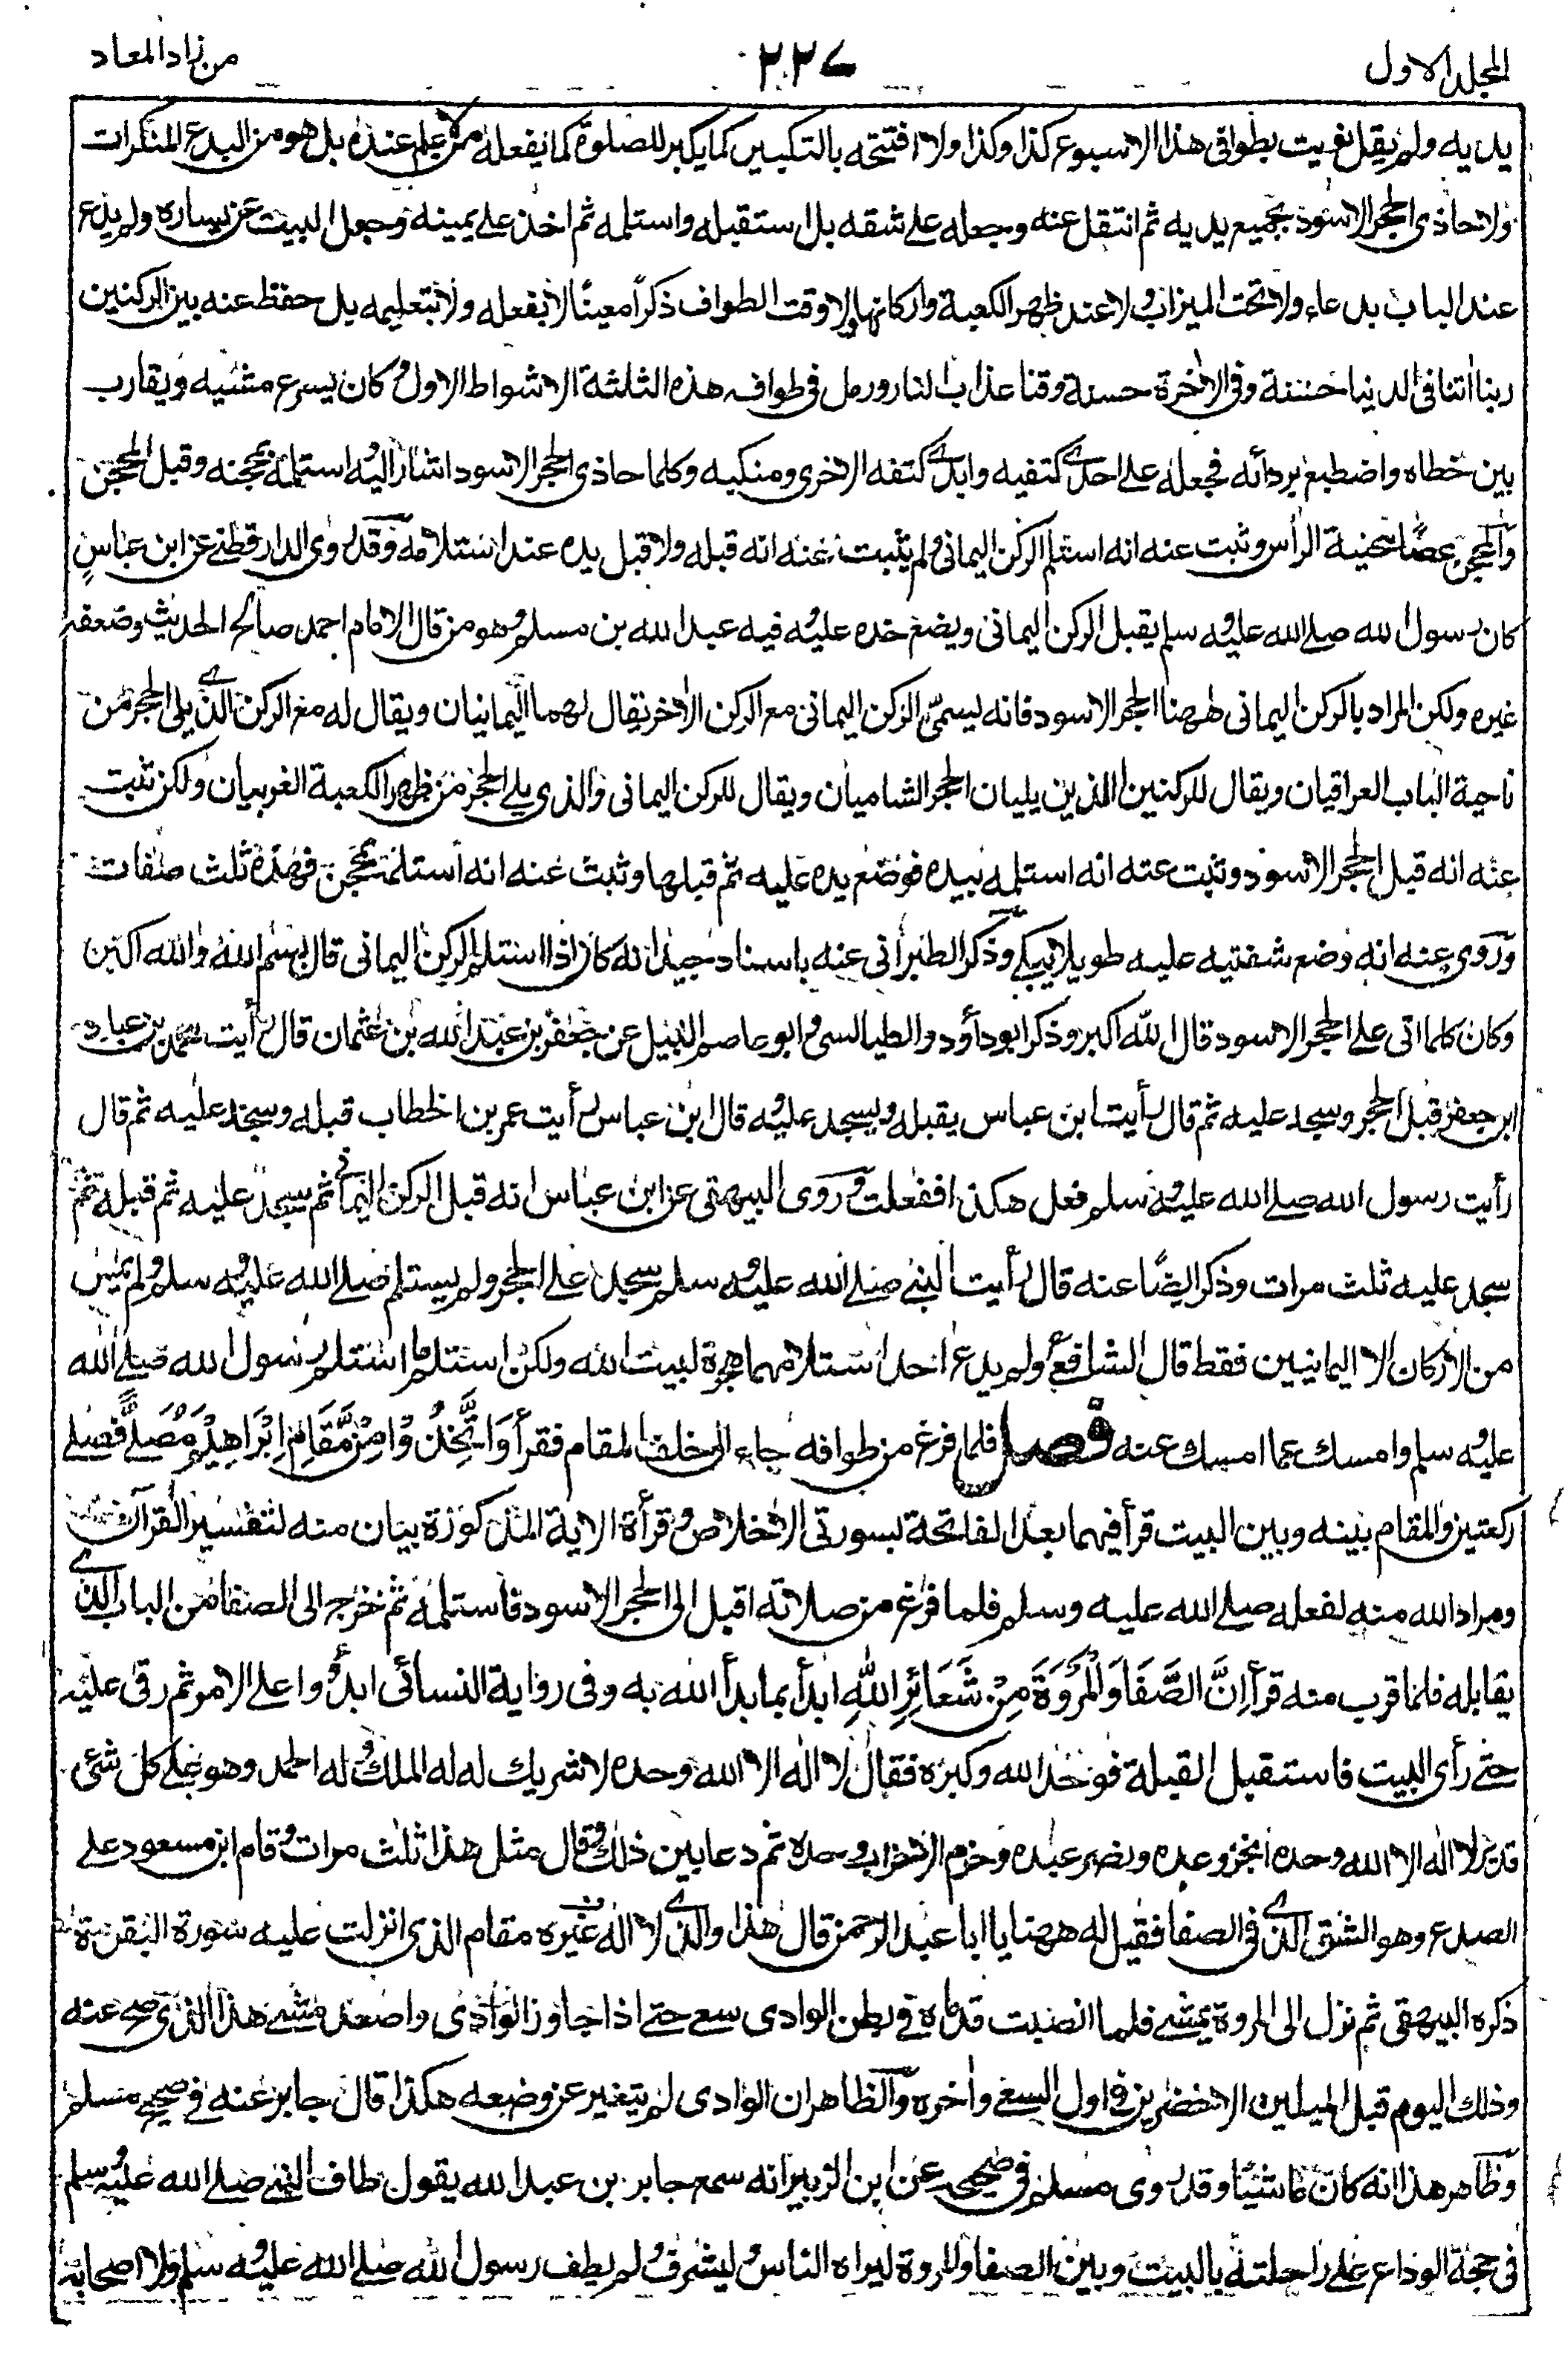 المجلد الاول
٢٢٧
من زاد المعاد
يديه ولم يقل نويت بطوافي هذا الاسبوع كذا وكذا ولا افتتحه بالتكبير كما يكبر للصلوة كما يفعله من لا علم عنده بل هو من البدع المنكرات
ولا حاذى الحجر الاسود بجميع يديه ثم انتقل عنه وجعله على شقه بل استقبله واستلمه ثم اخذ على يمينه وجعل البيت عن يساره ولم يدع
عند الباب بدعاء ولا تحت الميزاب ولا عند ظهر الكعبة واركانها ولا وقت الطواف ذكرا معينا لا بفعله ولا بتعليمه بل حفظ عنه بين الركنين
ربنا اتنا فى الدنيا حسنة وفى الاخرة حسنة وقنا عذاب النار ورمل فى طوافه هذه الثلثة الاشواط الاول وكان يسرع مشيه ويقارب
بين خطاه واضطبع بردائه فجعله على احدى كتفيه وابدى كتفه الاخرى ومنكبه وكلما حاذى الحجر الاسود اشار اليه واستلمه بمحجنه وقبل المحجن
والمحجن عصا محنية الرأس وثبت عنه انه استلم الركن اليمانى ولم يثبت عنه انه قبله ولا قبل يده عند استلامه وقد روى الدارقطنى عن ابن عباس
كان رسول الله صلے الله عليه وسلم يقبل الركن اليمانى ويضع خده عليه وفيه عبد الله بن مسلم وهو من قال الامام احمد صالح الحديث وضعفه
غيره ولكن المراد بالركن اليمانى ههنا الحجر الاسود فانه يسمى الركن اليمانى مع الركن الاخر يقال لهما اليمانيان ويقال له مع الركن الذى يلى الحجر من
ناحية الباب العراقيان ويقال للركنين اللذين يليان الحجر الشاميان ويقال للركن اليمانى والذى يلى الحجر من ظهر الكعبة الغربيان ولكن ثبت
عنه انه قبل الحجر الاسود وثبت عنه انه استلمه بيده فوضع يده عليه ثم قبلها وثبت عنه انه استلمه بمحجن فهذه ثلث صفات
وروى عنه انه وضع شفتيه عليه طويلا يبكى وذكر الطبرانى عنه باسناد جيد انه كان اذا استلم الركن اليمانى قال بسم الله والله اكبر
وكان كلما اتى على الحجر الاسود قال الله اكبر وذكر ابو داؤد والطيالسى وابو عاصم النبيل عن جعفر بن عبد الله بن عثمان قال رأيت محمد بن عباد
ابن جعفر قبل الحجر وسجد عليه ثم قال رأيت ابن عباس يقبله ويسجد عليه وقال ابن عباس رأيت عمر بن الخطاب قبله وسجد عليه ثم قال
رأيت رسول الله صلے الله عليه وسلم فعل هكذا ففعلت وروى البيهقى عن ابن عباس انه قبل الركن اليمانى ثم سجد عليه ثم قبله ثم
سجد عليه ثلث مرات وذكر ايضا عنه قال رأيت النبى صلے الله عليه وسلم سجد على الحجر ولم يستلم صلے الله عليه وسلم ولم يمس
من الاركان الا اليمانيين فقط قال الشافعى ولم يدع احد استلامهما هجرة لبيت الله ولكن استلم ما استلم رسول الله صلے الله
عليه وسلم وامسك عما امسك عنه فصل فلما فرغ من طوافه جاء الى خلف المقام فقرأ وَاتَّخِذُوْا مِنْ مَّقَامِ اِبْرَاهِيْمَ مُصَلًّى فصلى
ركعتين والمقام بينه وبين البيت قرأ فيهما بعد الفاتحة بسورتى الاخلاص وقرأة الاية المذكورة بيان منه لتفسير القرآن
ومراد الله منه لفعله صلے الله عليه وسلم فلما فرغ من صلاته اقبل الى الحجر الاسود فاستلمه ثم خرج الى الصفا من الباب الذى
يقابله فلما قرب منه قرأ اِنَّ الصَّفَا وَالْمَرْوَةَ مِنْ شَعَائِرِ اللهِ ابدأ بما بدأ الله به وفى رواية النسائى ابدؤا على الامر ثم رقى عليه
حتى رأى البيت فاستقبل القبلة فوحد الله وكبره فقال لا اله الا الله وحده لا شريك له له الملك وله الحمد وهو على كل شئ
قدير لا اله الا الله وحده انجز وعده ونصر عبده وهزم الاحزاب وحده ثم دعا بين ذلك وقال مثل هذا ثلث مرات وقام ابن مسعود على
الصدع وهو الشق الذى فى الصفا فقيل له ههنا يا ابا عبد الرحمن قال هذا والذى لا اله غيره مقام الذى انزلت عليه سورة البقرة
ذكره البيهقى ثم نزل الى المروة يمشى فلما انصبت قدماه فى بطن الوادى سعى حتى اذا جاوز الوادى واصعد مشى هذا الذى صح عنه
وذلك اليوم قبل الميلين الاخضرين فى اول السعى واخره والظاهر ان الوادى لم يتغير عن وضعه هكذا قال جابر عنه فى صحيح مسلم
وظاهر هذا انه كان ماشيا وقد روى مسلم فى صحيحه عن ابن الزبير انه سمع جابر بن عبد الله يقول طاف النبى صلے الله عليه وسلم
فى حجة الوداع على راحلته بالبيت وبين الصفا والمروة ليراه الناس وليشرف ولم يطف رسول الله صلے الله عليه وسلم ولا اصحابه